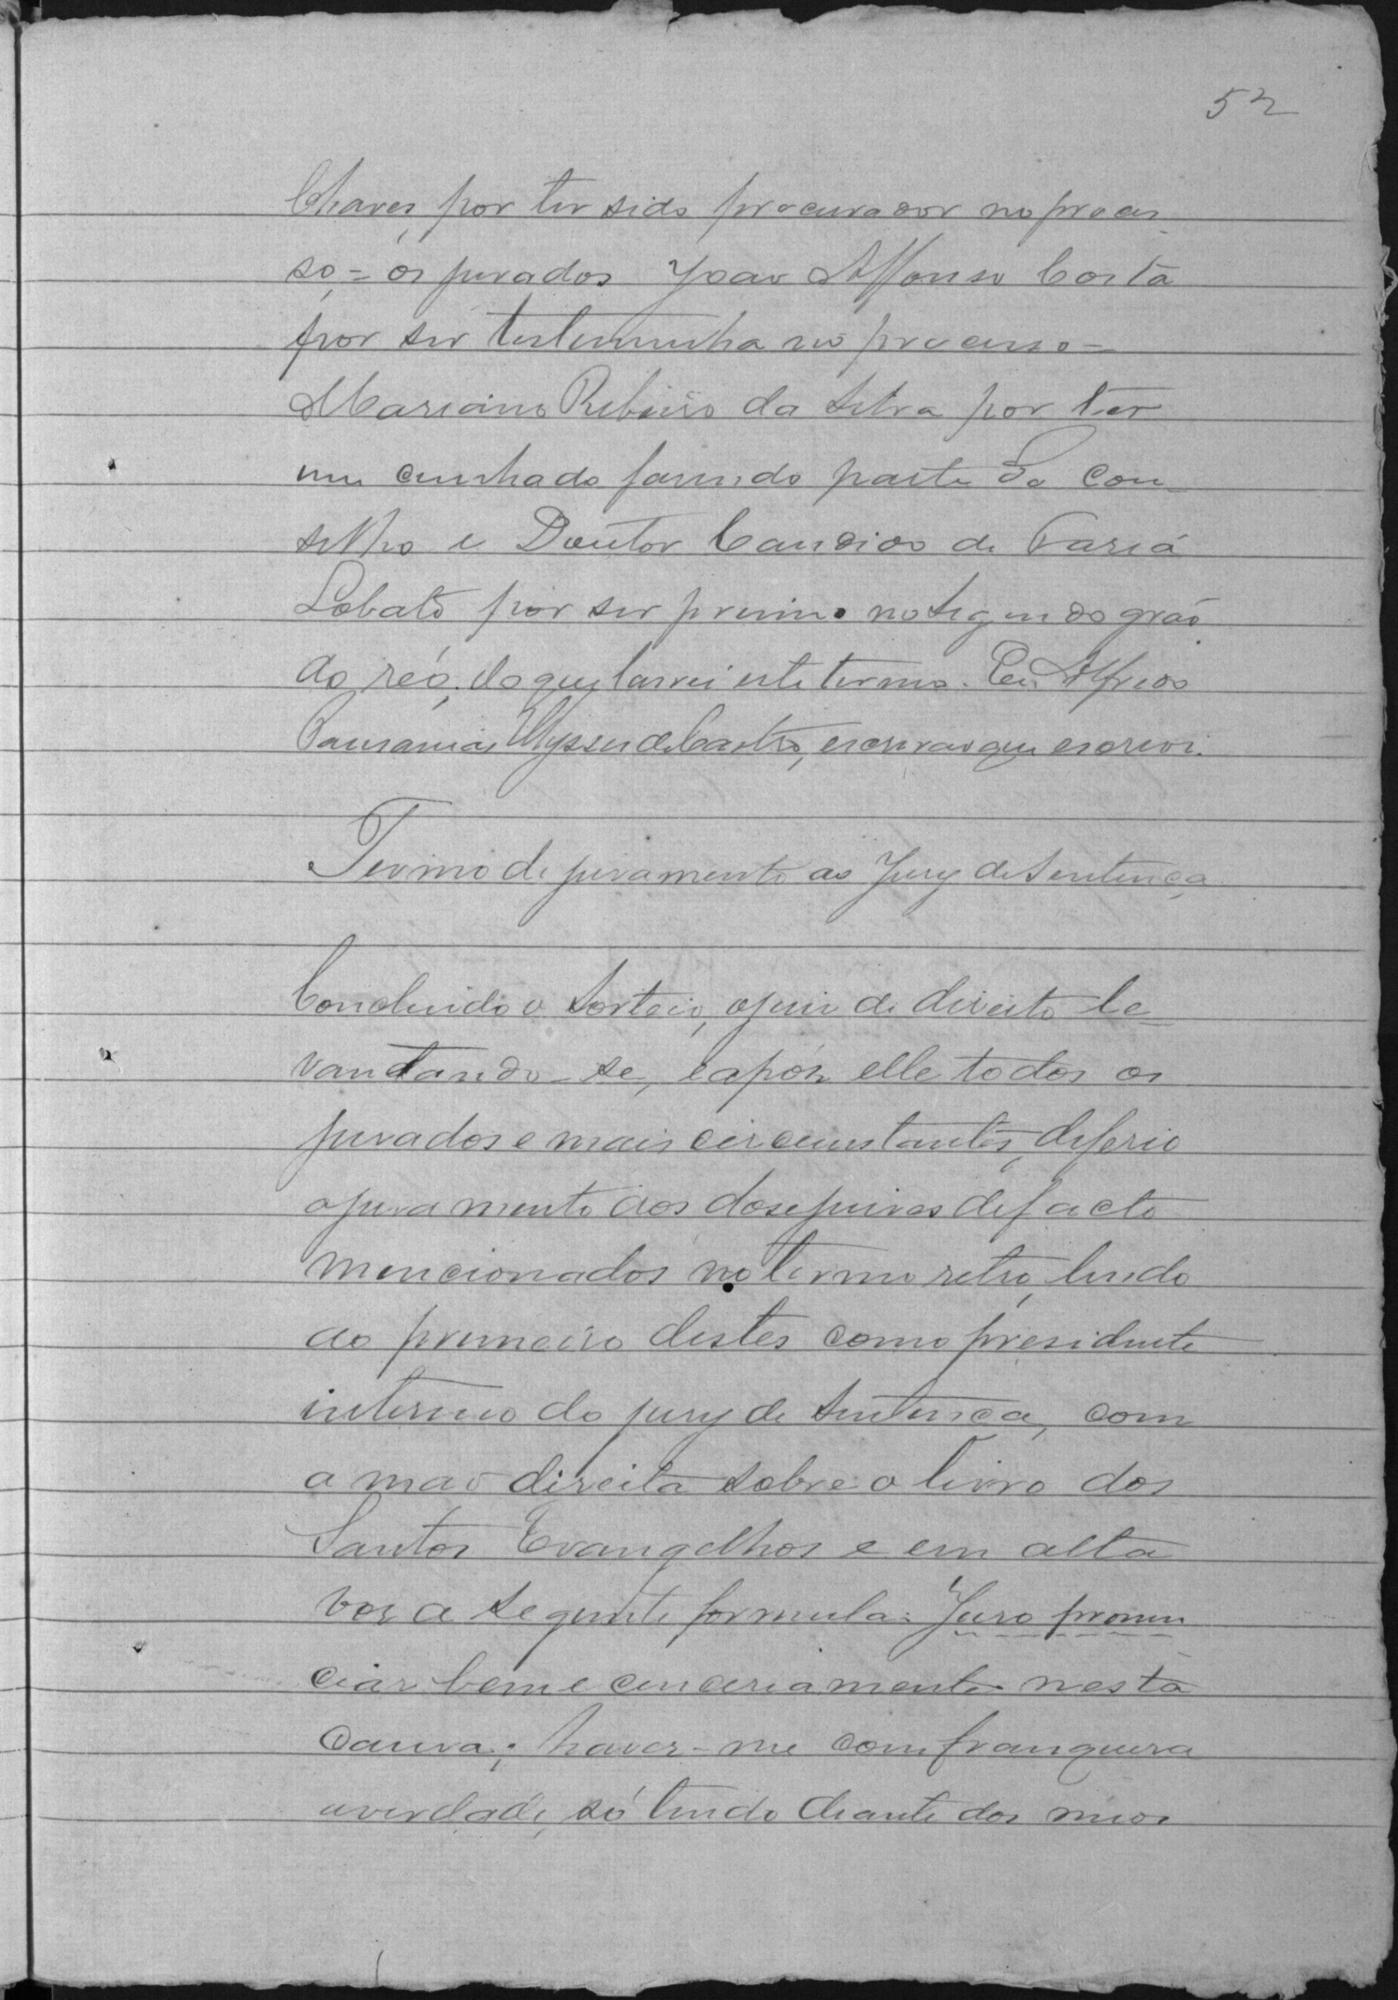 52
Chaves, por ter sido procurador no proces
so = os jurados João Affonso Costa
por ser testemunha no processo =
Marciano Ribeiro da Silva por ter
um cunhado fasendo parte do con-
selho e Doutor Candido de Faria
Lobato por ser primo no segundo gráo
do réo, do que, lavrei este termo. Eu Alfredo
Pausanias Ulysses de Castro, escrivao que escrevi.
Termo de juramento ao Jury de Sentença
Concluido o sorteio, o juiz de direito le-
vantando-se, e apóz elle todos os
jurados e mais circumstantes, deferio
o juramento aos dose juizes de facto
mencionados no termo retro, lendo
ao primeiro destes como presidente
interino do jury de sentença, com
a mao direita sobre o livro dos
Santos Evangelhos e em alta
voz a seguinte formula: Juro pronun
ciar bem e cinceriamente nesta
causa; haver-me com franqueza
e verdade, só tendo diante dos meos